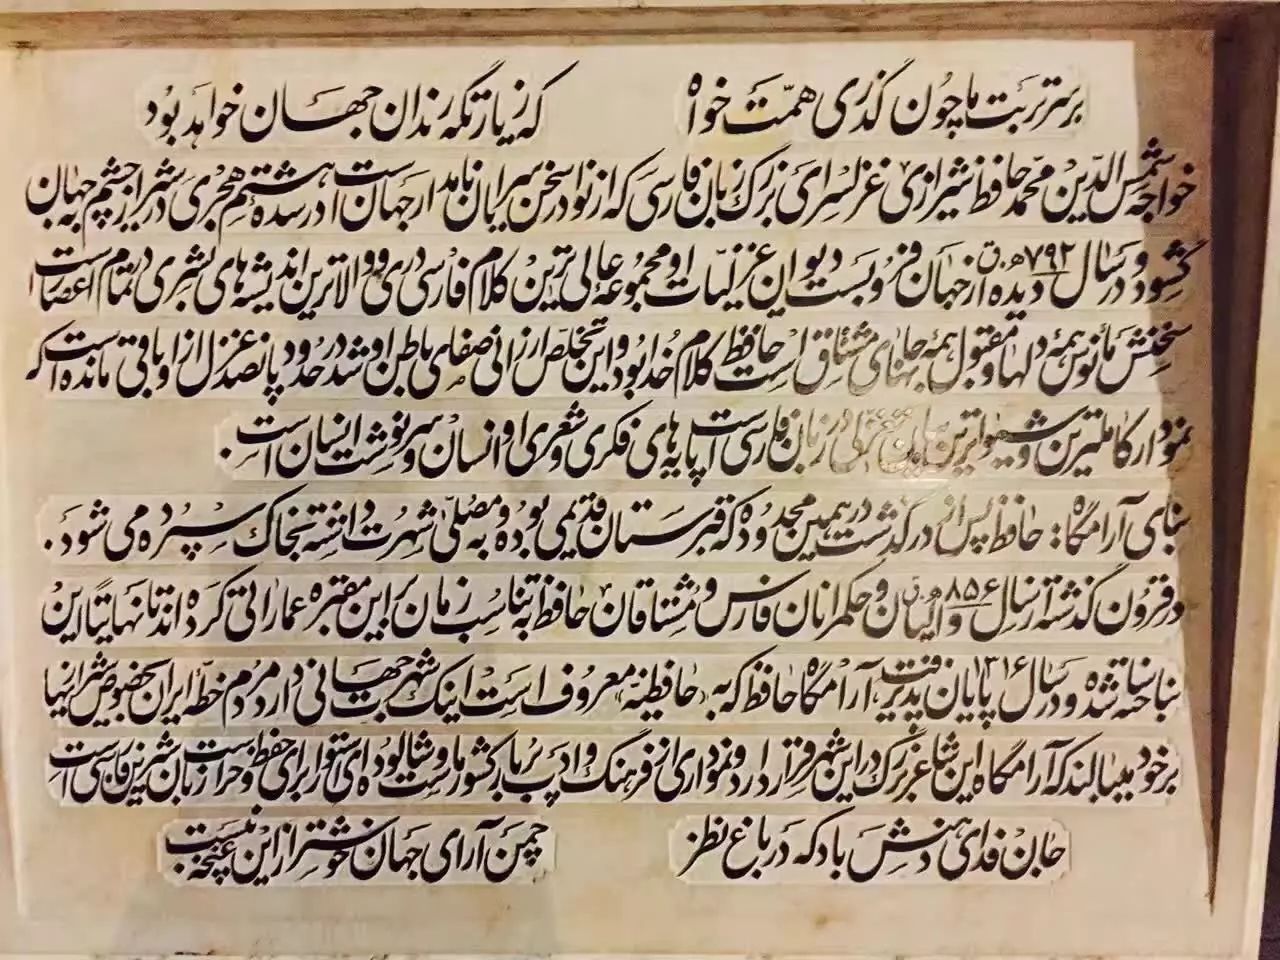 بر سر تربت ما چون گذری همت خواه که زیارتگه رندان جهان خواهد بود
خواجه شمس الدین محمد حافظ شیرازی غزلسرای بزرگ زبان فارسی که از نوادر سخن سرایان نامدار جهان است در سده هشتم هجری در شیراز چشم به جهان
گشود و در سال ۷۹۲ ه.ق دیده از جهان فرو بست دیوان غزلیات او مجموعه عالی ترین کلام فارسی دری و والاترین اندیشه های بشری در تمام اعصار است
سخنش مأنوس همه دلها و مقبول همه جانهای مشتاق است حافظ کلام خدا بود و این تخلص ارزانی صفای باطن او شد در حدود پانصد غزل از او باقی مانده است که
نمودار کاملترین و شیواترین غزل در زبان فارسی است پایه های فکری و شعری او انسان و سرنوشت انسان است.
بنای آرامگاه: حافظ پس از درگذشت در همین محدوده که قبرستان قدیمی بوده و به مصلی شهرت داشته بخاک سپرده می شود.
در قرون گذشته از سال ۸۵۶ ه.ق والیان و حکمرانان فارس و مشتاقان حافظ به تناسب زمان بر این مقبره عماراتی کرده اند تا نهایتا این
بنا ساخته شده و در سال ۱۳۱۶ پایان پذیرفت، آرامگاه حافظ که به «حافظیه» معروف است اینک شهرت جهانی دارد مردم خطه ایران بخصوص شیرازیها
بر خود میبالند که آرامگاه این شاعر بزرگ در این شهر قرار دارد و نموداری از فرهنگ و ادب پربار کشور ماست و شالوده ای استوار برای حفظ و حراست زبان شیرین فارسی است
جان فدای دهنش باد که در باغ نظر چمن آرای جهان خوشتر از این غنچه نبست